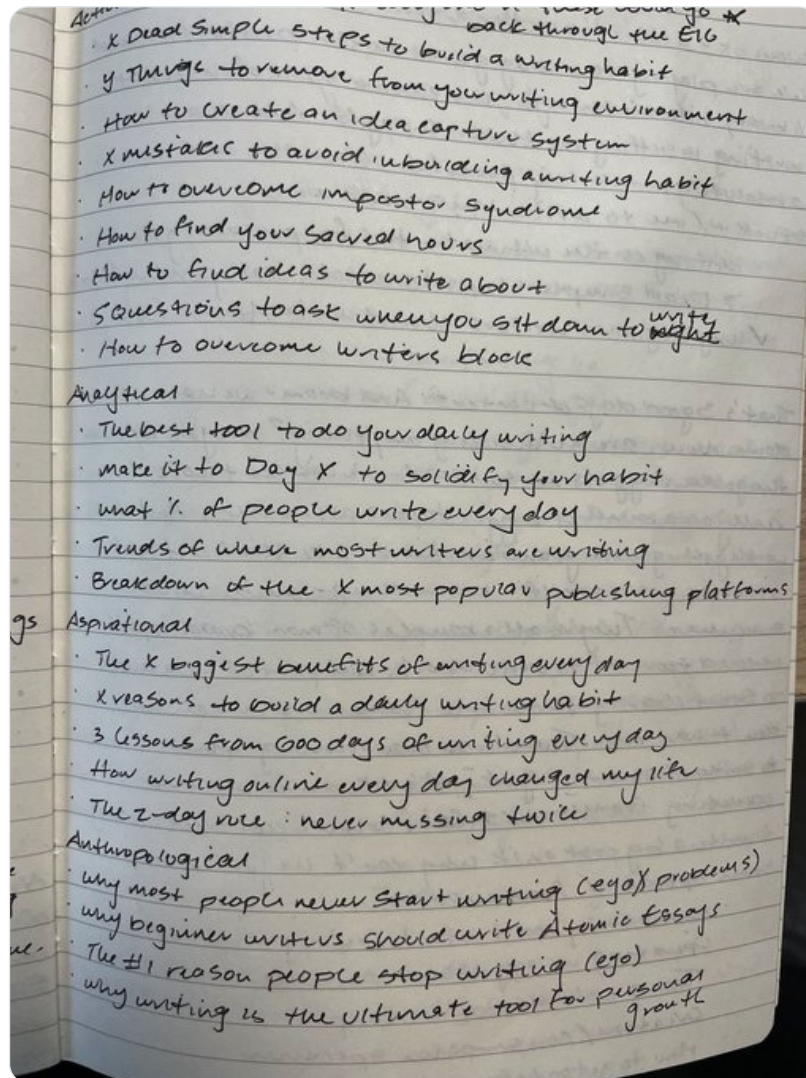 go *
back through the EIG
· X Dead Simple steps to build a writing habit
· y Things to remove from your writing environment
· How to create an idea capture system
· X mistakes to avoid in building a writing habit
· How to overcome impostor syndrome
· How to find your sacred hours
· How to find ideas to write about
· 5 questions to ask when you sit down to write
· How to overcome writers block
Analytical
· The best tool to do your daily writing
· make it to Day X to solidify your habit
· what % of people write every day
· Trends of where most writers are writing
· Breakdown of the X most popular publishing platforms
gs
Aspirational
· The X biggest benefits of writing every day
· X reasons to build a daily writing habit
· 3 lessons from 600 days of writing every day
· How writing online every day changed my life
· The 2-day rule : never missing twice
Anthropological
· why most people never start writing (ego)(X problems)
· why beginner writers should write Atomic Essays
· The #1 reason people stop writing (ego)
· why writing is the ultimate tool for personal
growth